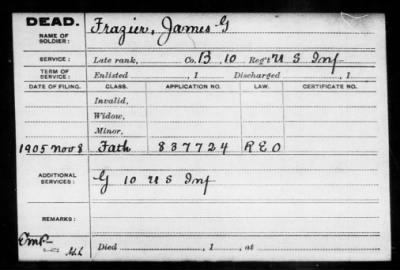 DEAD.
NAME OF SOLDIER: Frazier, James G
SERVICE: Late rank, Co. B, 10 Reg't U S Inf
TERM OF SERVICE: Enlisted , 1 Discharged , 1
DATE OF FILING. CLASS. APPLICATION NO. LAW. CERTIFICATE NO.
Invalid,
Widow,
Minor,
1905 Nov 8 Fath 837724 REO
ADDITIONAL SERVICES: G 10 U S Inf
REMARKS:
Died , 1 , at